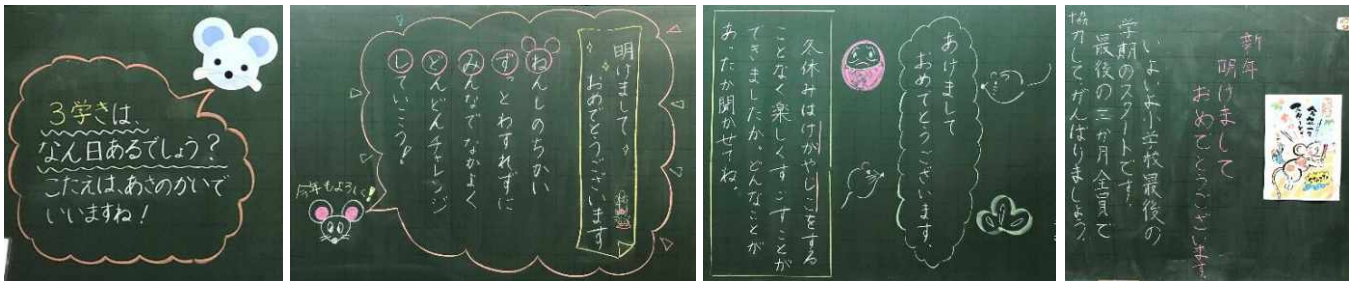 3学きは、
なん日あるでしょう？
こたえは、あさのかいで
いいますね！
明けまして
おめでとうございます
ねんしのちかい
ずっとわすれずに
みんなでなかよく
どんどんチャレンジ
していこう！
今年もよろしく！
あけまして
おめでとうございます。
冬休みはけがやじこをする
ことなく楽しくすごすことが
できましたか。どんなことが
あったか聞かせてね。
新年
明けまして
おめでとうございます
いよいよ小学校最後の
学期のスタートです。
最後の三か月全員で
協力してがんばりましょう。